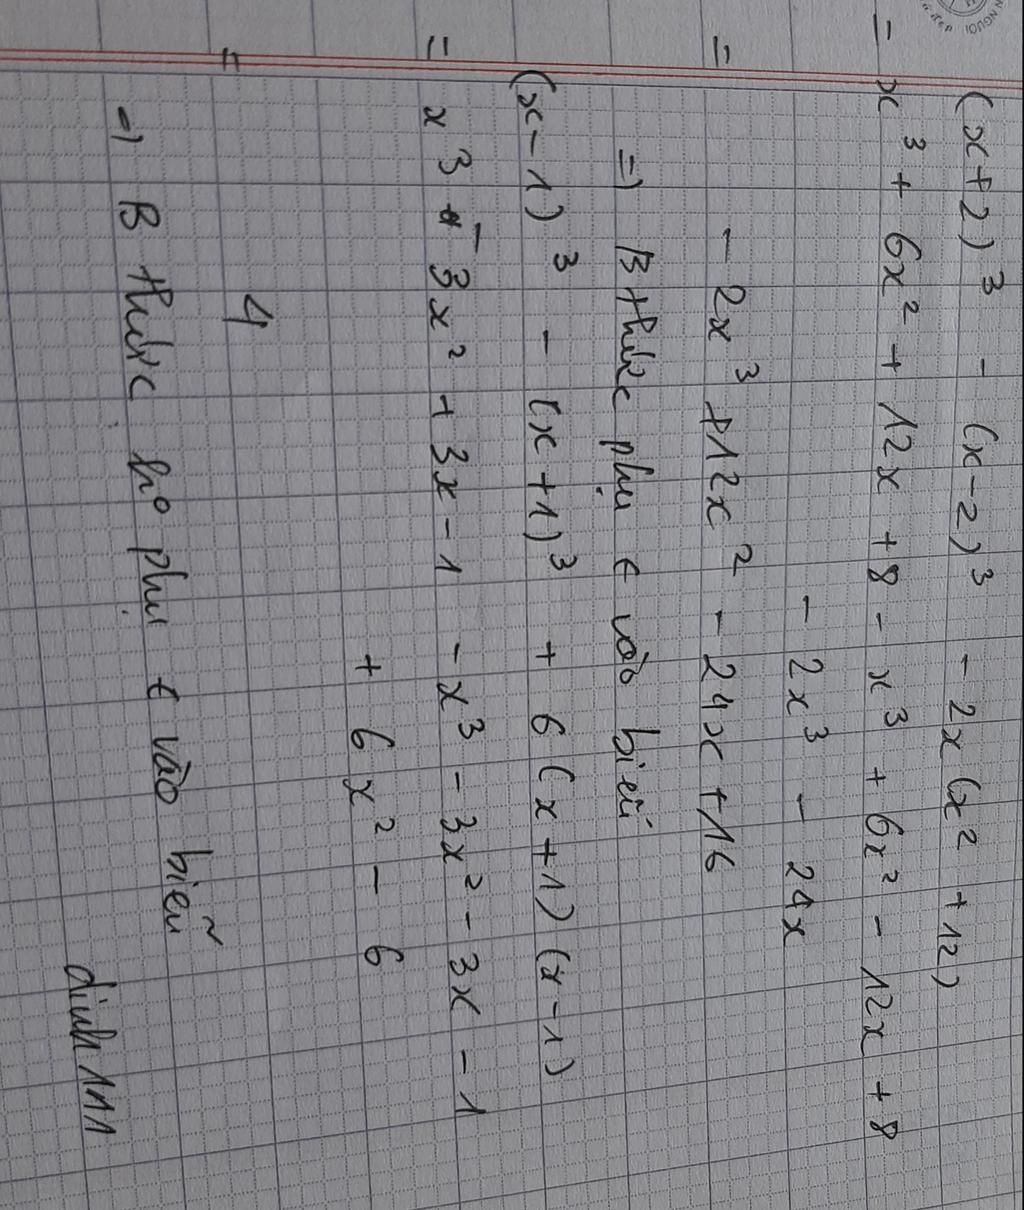 (x+2)³ - (x-2)³ - 2x(x² + 12)
= x³ + 6x² + 12x + 8 - x³ + 6x² - 12x + 8
- 2x³ - 24x
= - 2x³ + 12x² - 24x + 16
=) B thức phụ t vào biến
(x-1)³ - (x+1)³ + 6(x+1)(x-1)
= x³ - 3x² + 3x - 1 - x³ - 3x² - 3x - 1
+ 6x² - 6
= 4
=) B thức ko phụ t vào biến
dinh 111